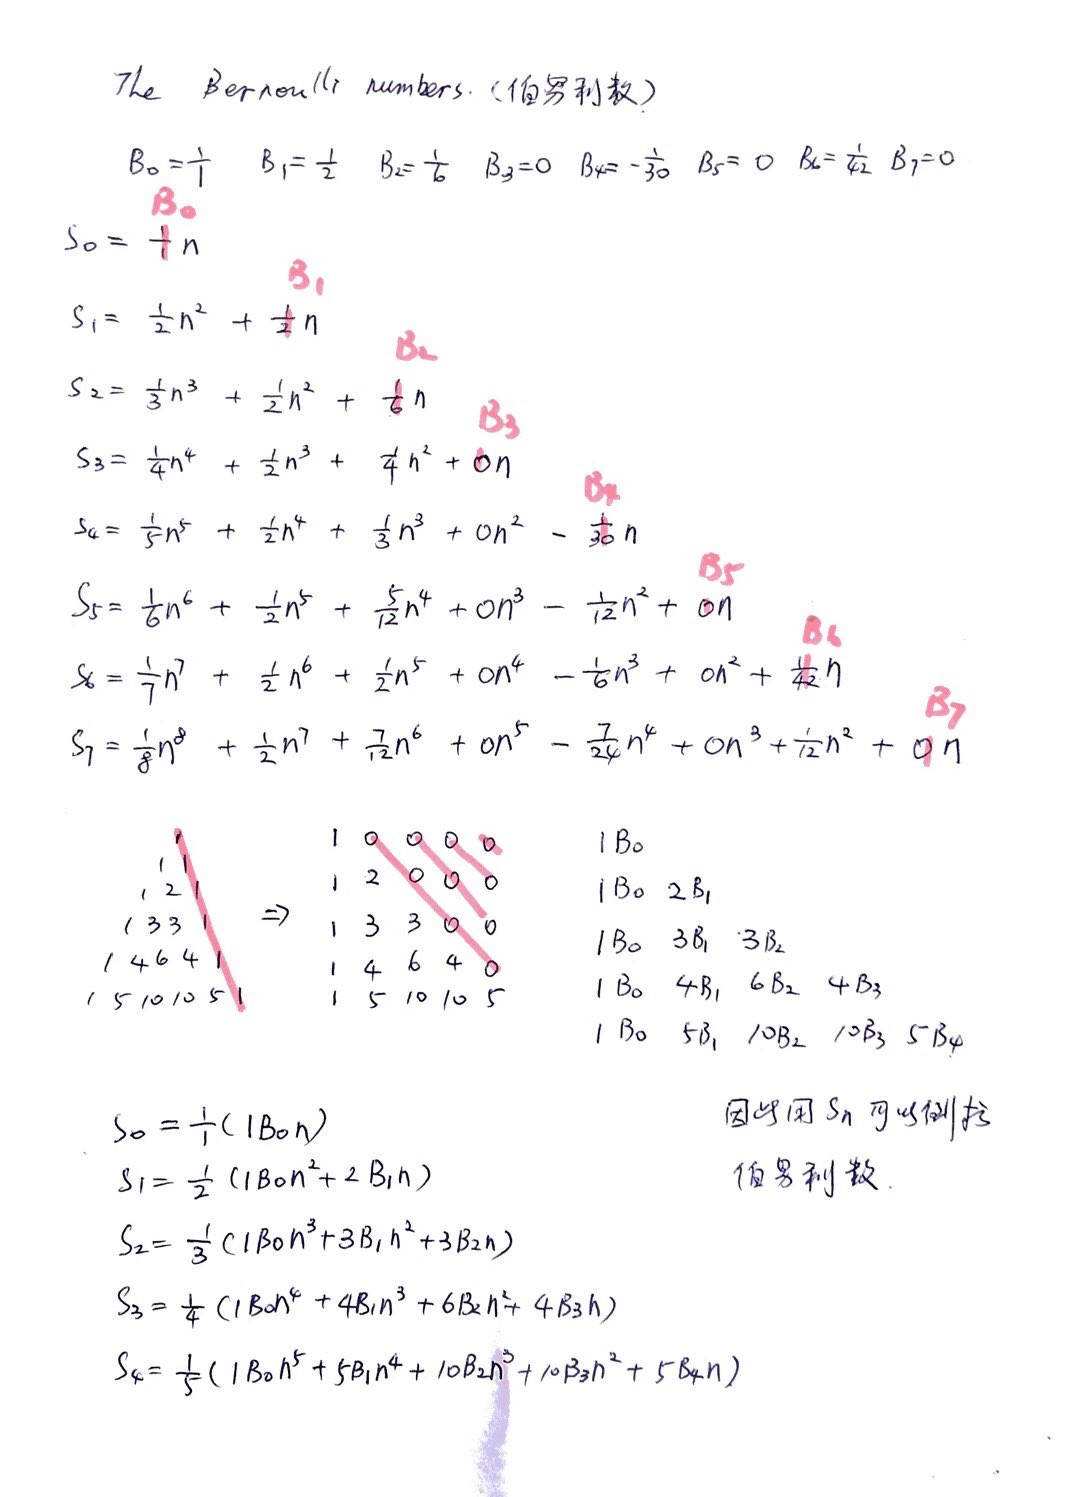 The Bernoulli numbers.(伯努利数)
B₀=1/1 B₁=1/2 B₂=1/6 B₃=0 B₄=-1/30 B₅=0 B₆=1/42 B₇=0
B₀
S₀ = 1/1 n
B₁
S₁ = 1/2 n² + 1/2 n
B₂
S₂ = 1/3 n³ + 1/2 n² + 1/6 n
B₃
S₃ = 1/4 n⁴ + 1/2 n³ + 1/4 n² + 0n
B₄
S₄ = 1/5 n⁵ + 1/2 n⁴ + 1/3 n³ + 0n² - 1/30 n
B₅
S₅ = 1/6 n⁶ + 1/2 n⁵ + 5/12 n⁴ + 0n³ - 1/12 n² + 0n
B₆
S₆ = 1/7 n⁷ + 1/2 n⁶ + 1/2 n⁵ + 0n⁴ - 1/6 n³ + 0n² + 1/42 n
B₇
S₇ = 1/8 n⁸ + 1/2 n⁷ + 7/12 n⁶ + 0n⁵ - 7/24 n⁴ + 0n³ + 1/12 n² + 0n
1
1 1
1 2 1
1 3 3 1
1 4 6 4 1
1 5 10 10 5 1
⇒
1 0 0 0 0
1 2 0 0 0
1 3 3 0 0
1 4 6 4 0
1 5 10 10 5
1B₀
1B₀ 2B₁
1B₀ 3B₁ 3B₂
1B₀ 4B₁ 6B₂ 4B₃
1B₀ 5B₁ 10B₂ 10B₃ 5B₄
S₀ = 1/1 (1B₀n)
S₁ = 1/2 (1B₀n² + 2B₁n)
S₂ = 1/3 (1B₀n³ + 3B₁n² + 3B₂n)
S₃ = 1/4 (1B₀n⁴ + 4B₁n³ + 6B₂n² + 4B₃n)
S₄ = 1/5 (1B₀n⁵ + 5B₁n⁴ + 10B₂n³ + 10B₃n² + 5B₄n)
因此用 Sn 可以倒推
伯努利数.